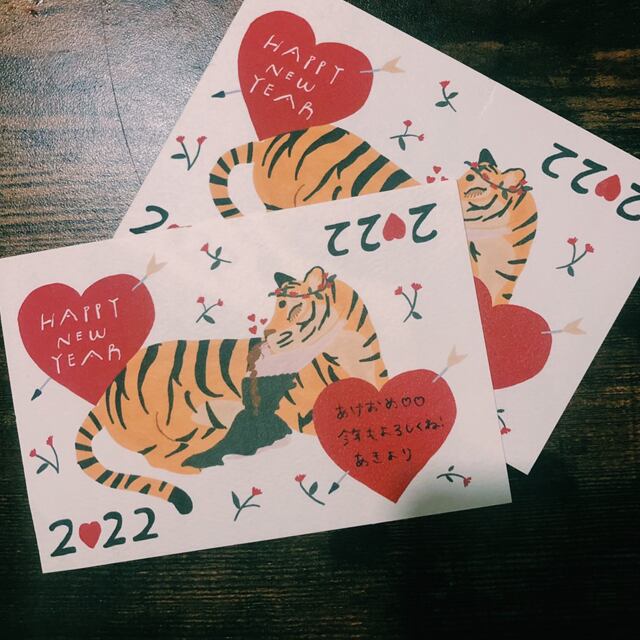 HAPPY
NEW
YEAR
2022
2022
HAPPY
NEW
YEAR
2022
あけおめ♡♡
今年もよろしくね!
あきより
2022